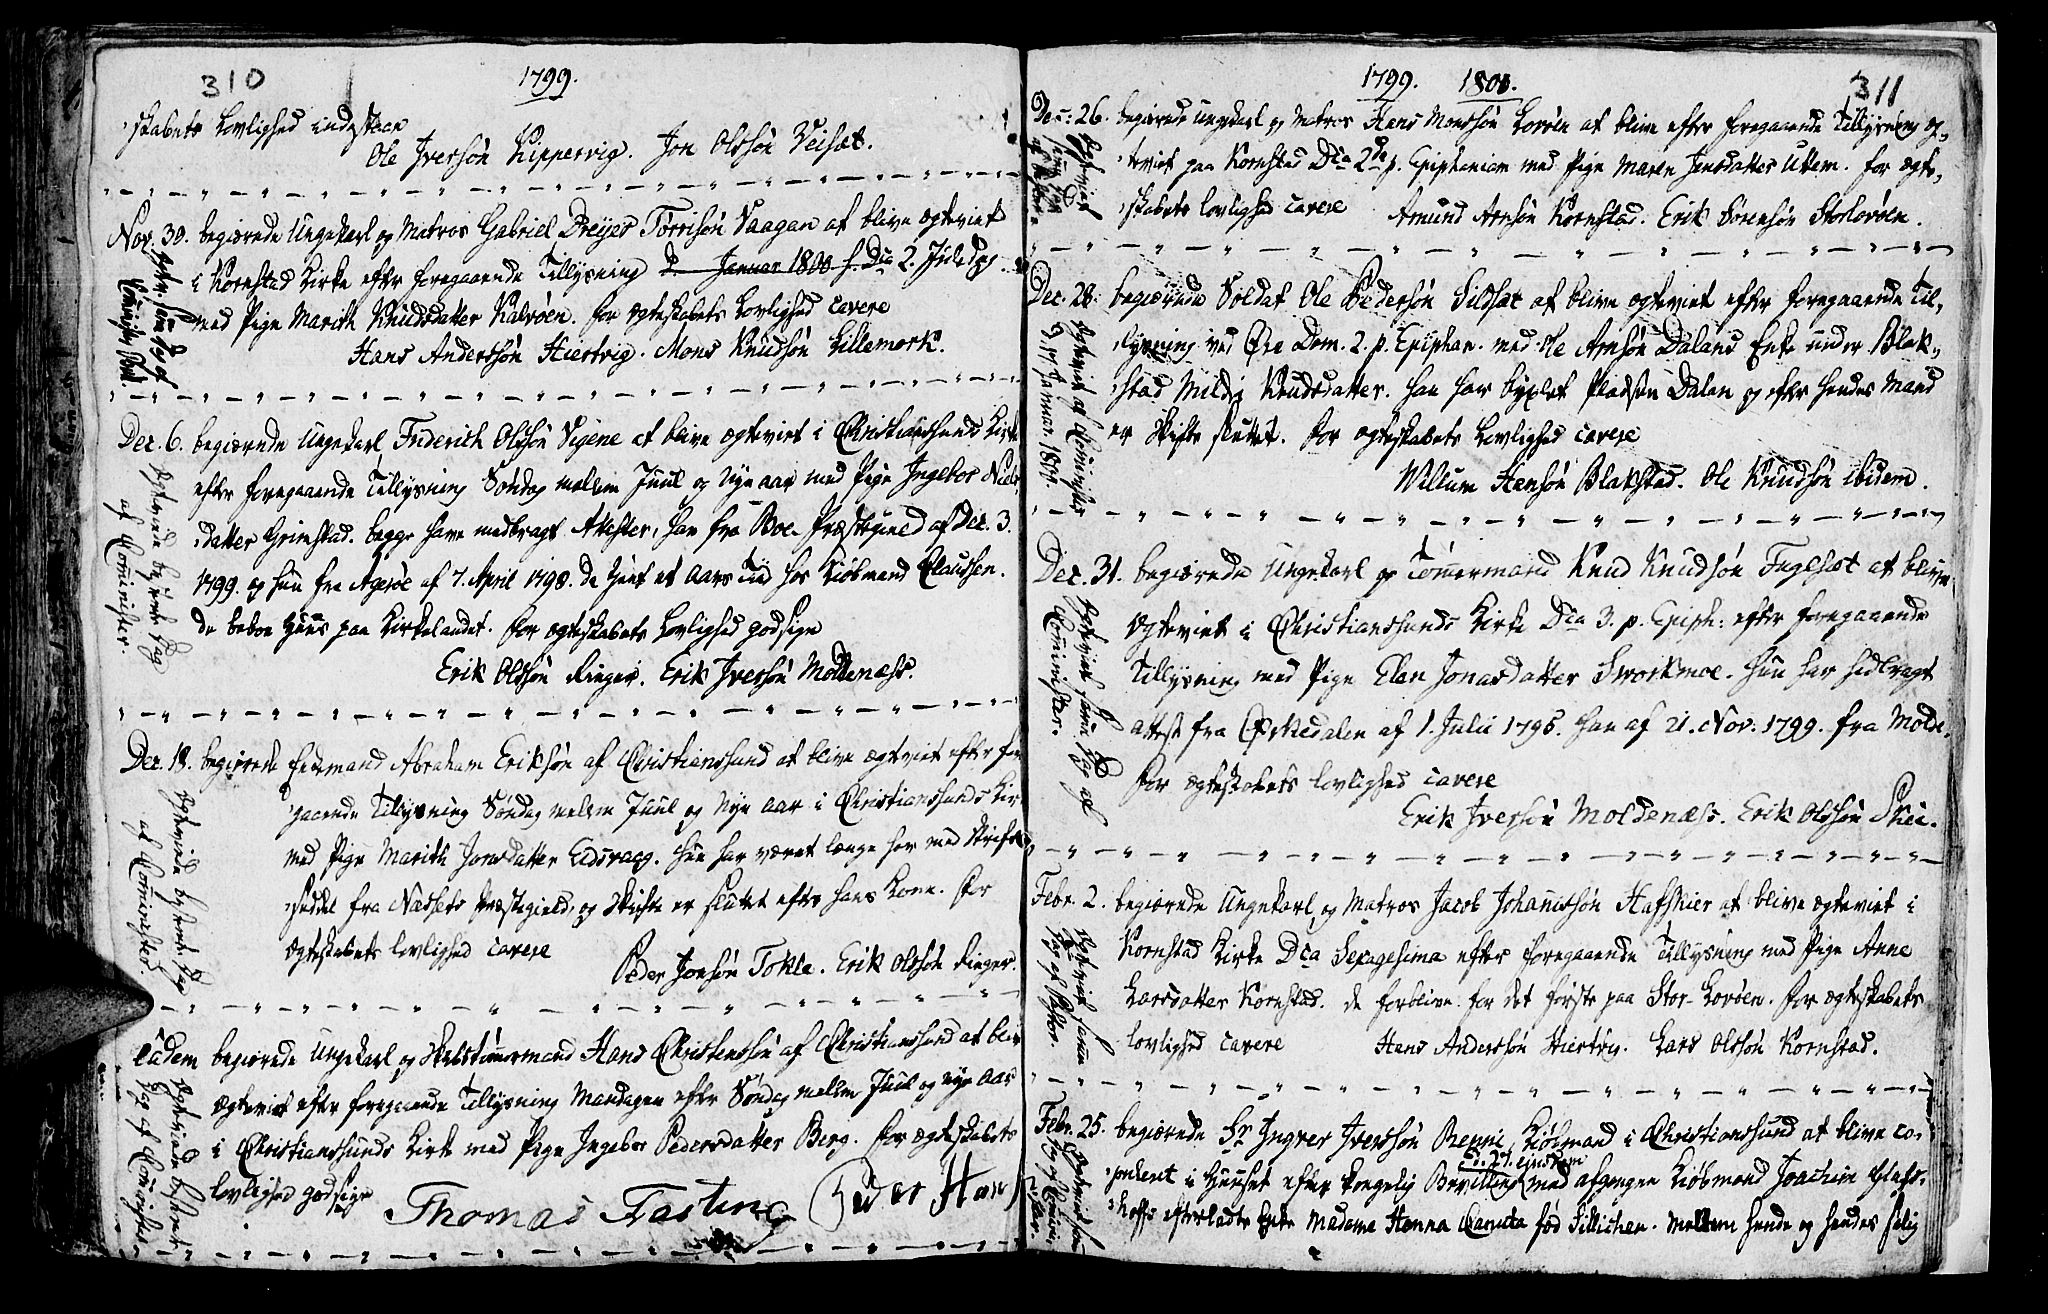 310
1799.
skabets Lovlighed indestaar
Ole Iversøn Kippervig. Jon Olssøn Veisæt.
Nov. 30. begiærede Ungekarl og Matros Gabriel Dreyer Tørrisøn Vaagan at blive ægteviet
i Kornstad Kirke efter foregaaende Tillysning D. Januar 1800 s. Dca 2. Juledag
med Pige Marith Knudsdatter Kalvøen. for ægteskabets Lovlighed cavere
Hans Anderssøn Hiertvig. Mons Knudsøn Lillemork.
ægtev. samme Dag af
Dec. 6. begiærede Ungekarl Friderich Olssøn Vigene at blive ægteviet i Christianssunds Kirke
efter foregaaende Tillysning Søndag mellem Juul og Nyeaar med Pige Ingebor Niels-
datter Grimstad. begge have medbragt Attester, han fra Boe Præstegield af Dec. 3.
1799 og hun fra Agerøe af 7. April 1798. de tient et Aars Tiid hos Kiøbmand Claussen.
De beboe Huus paa Kirkelandet. for ægteskabets Lovlighed godsige
Erik Olssøn Ringer. Erik Iversøn Moldenæss.
ægteviede bestemte Dag
af Comminister.
Dec. 18. begiærede Enkemand Abraham Erikssøn af Christianssund at blive ægteviet efter fore-
gaaende Tillysning Søndag mellem Juul og Nye Aar i Christianssunds Kirke
med Pige Marith Jonsdatter Eidsvaag. hun har været længe her med Skrifte
seddel fra Næssets Præstegield, og Skifte er sluttet efter hans Kone. for
ægteskabets lovlighed cavere
Peder Jonsøn Tokle. Erik Olssøn Ringer.
ægteviede bestemte Dag
af Comminister
Eadem begiærede Ungekarl og Skibstømmermand Hans Christenssøn af Christianssund at blive
ægteviet efter foregaaende Tillysning Mandagen efter Søndag mellem Juul og nye Aar
i Christianssunds Kirke med Pige Ingebor Pedersdatter Berg. for ægteskabets
lovlighed godsige
Thomas Fasting Peder Hans
ægteviede bestemt
Dag af Comminister
1799. 1800.
311
Dec: 26. begiærede Ungekarl og Matros Hans Monssøn Lovøen at blive efter foregaaende Tillysning æg-
teviet paa Kornstad Dca 2de p. Epiphaniam med Pige Maren Jensdatter Utem. for ægte-
skabets lovlighed cavere Amund Arnsøn Kornstad. Erik Sørensøn Storlovøen.
Dec. 28. begiærede Soldat Ole Pedersøn Sildsæt at blive ægteviet efter foregaaende Til-
lysning ved Øre Dom. 2. p. Epiphan. med Ole Arnsøn Dalans Enke under Blak-
stad Mildri Knudsdatter. han har byxlet Pladsen Dalan og efter hendes Mand
er Skifte sluttet. for ægteskabets lovlighed cavere
Willum Hansøn Blakstad. Ole Knudsøn ibidem.
ægteviet af Comminister
d. 17. Januar. 1800.
Dec. 31. begiærede Ungekarl og Tømmermand Knud Knudsøn Fuglsæt at blive
ægteviet i Christianssunds Kirke Dca 3. p. Epiph: efter foregaaende
Tillysning med Pige Elen Jonasdatter Sworkmoe. hun har hidbragt
attest fra Ørkedalen af 1. Julii 1795. han af 21. Nov. 1799. fra Molde.
for ægteskabets lovlighed cavere
Erik Iversøn Moldenæss. Erik Olssøn Skei.
ægteviet samme Dag af
Comminister.
Febr. 2. begiærede Ungekarl og Matros Jacob Johanissøn Hafskier at blive ægteviet i
Kornstad Kirke Dca Sexagesima efter foregaaende Tillysning med Pige Anne
Larsdatter Kornstad. de forblive for det første paa Stor-Lovøen. for ægteskabets
lovlighed cavere Hans Anderssøn Hiertvig. Lars Olssøn Kornstad.
ægteviet samme
Dag af Pastor.
Febr. 25. begiærede Hr Ingver Iverssøn Renni, Kiøbmand i Christianssund at blive co-
puleret i Huuset efter kongelig Bevilling med afgangen Kiøbmand Joachim Hals-
hoffs efterladte Enke Madame Hanna Canuta fød Tillischer. mellem hende og hendes salig